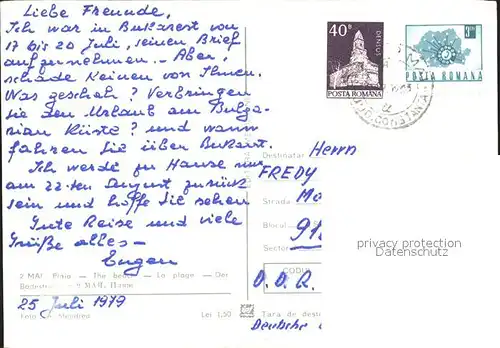 Liebe Freunde,
Ich war in Bukarest von
17 bis 20 Juli, seinen Brief
aufzunehmen. Aber,
schade Keinen von Ihnen.
Was geschah? Verbringen
sie den Urlaub am Bulga-
rian Küste? und wann
fahren Sie über Bukarest.
Ich werde zu Hause nur
am 22-ten August zurück
sein und hoffe Sie sehen
Gute Reise und viele
Grüße alles—
Eugen
2 MAI Plaja — The beach — La plage — Der
Badestrand
25 Juli 1979
Foto
Lei 1,50
40 B
DENSUS
POSTA ROMANA
POSTA ROMANA
CONSTANTA
Destinatar
Herrn
FREDY
Strada
Mo
Blocul
91
Sector
CODUL
D.D.R.
Tara de dest
Deutsche
privacy protection
Datenschutz